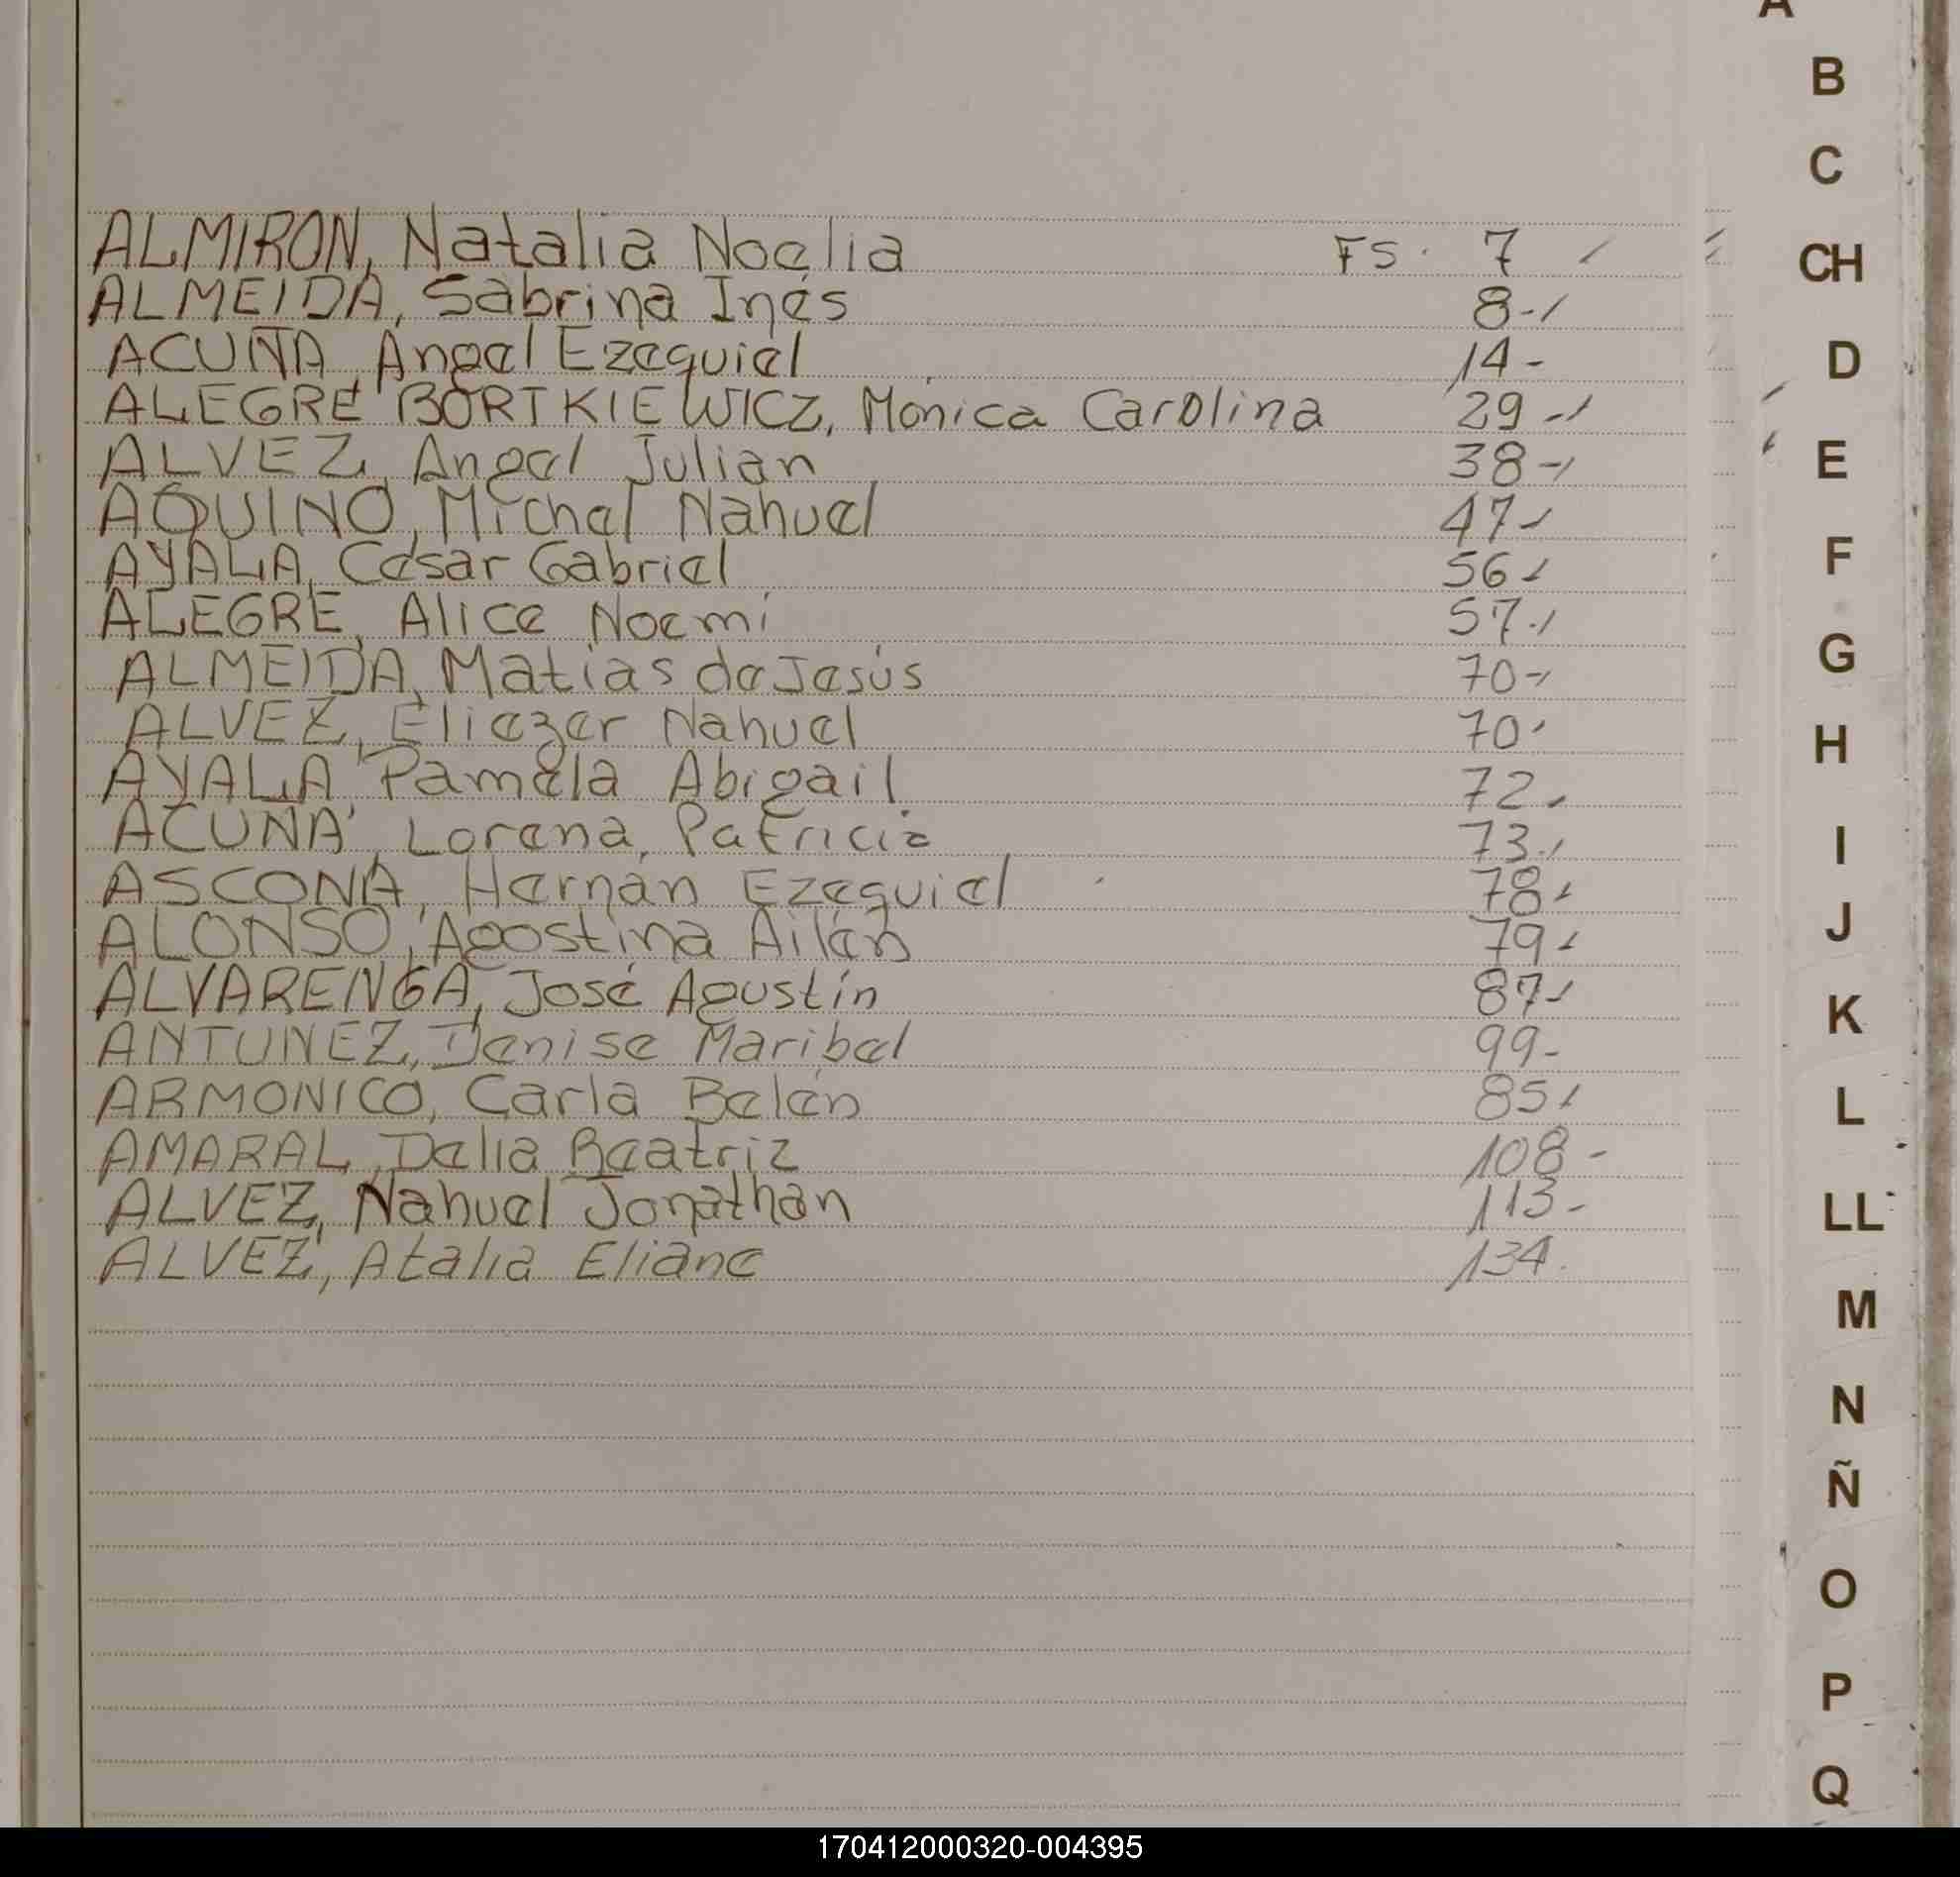 A
B
C
CH
D
E
F
G
H
I
J
K
L
LL
M
N
Ñ
O
P
Q
ALMIRON, Natalia Noelia FS. 7
ALMEIDA, Sabrina Inés 8-
ACUÑA, Angel Ezequiel 14-
ALEGRE BORTKIEWICZ, Monica Carolina 29-
ALVEZ, Angel Julian 38-
AQUINO, Michel Nahuel 47-
AYALA, César Gabriel 56-
ALEGRE, Alice Noemí 57.
ALMEIDA, Matías de Jesús 70-
ALVEZ, Eliezer Nahuel 70.
AYALA, Pamela Abigail 72.
ACUÑA, Lorena, Patricia 73.
ASCONA, Hernán Ezequiel 78
ALONSO, Agostina Ailén 79
ALVARENGA, José Agustín 87-
ANTUNEZ, Denise Maribel 99-
ARMONICO, Carla Belén 85
AMARAL, Delia Beatriz 108-
ALVEZ, Nahuel Jonathan 113-
ALVEZ, Atalia Eliane 134.
170412000320-004395